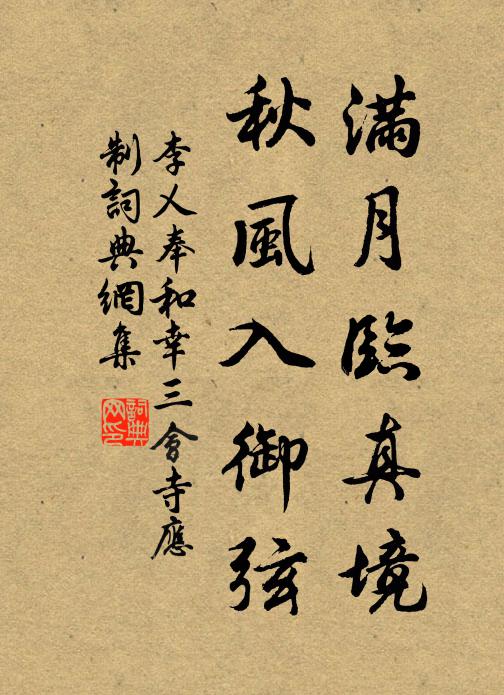 滿月臨真境
秋風入御弦
李乂奉和幸三會寺應
制詞典網集
詞典網印